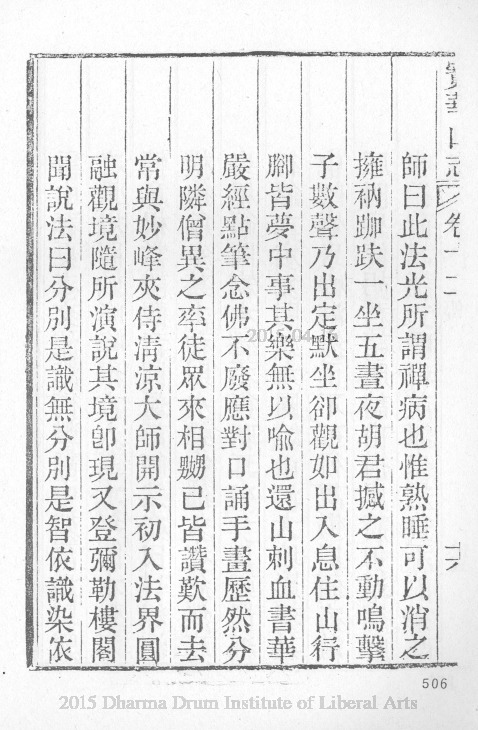 寶華山志 卷十二 十六
師曰此法光所謂禪病也惟熟睡可以消之
擁衲跏趺一坐五晝夜胡君撼之不動鳴擊
子數聲乃出定默坐卻觀如出入息住山行
腳皆夢中事其樂無以喻也還山刺血書華
嚴經點筆念佛不廢應對口誦手畫歷然分
明隣僧異之率徒眾來相嬲已皆讚歎而去
常與妙峰夾侍清涼大師開示初入法界圓
融觀境隨所演說其境卽現又登彌勒樓閣
聞說法曰分別是識無分別是智依識染依
506
2015 Dharma Drum Institute of Liberal Arts